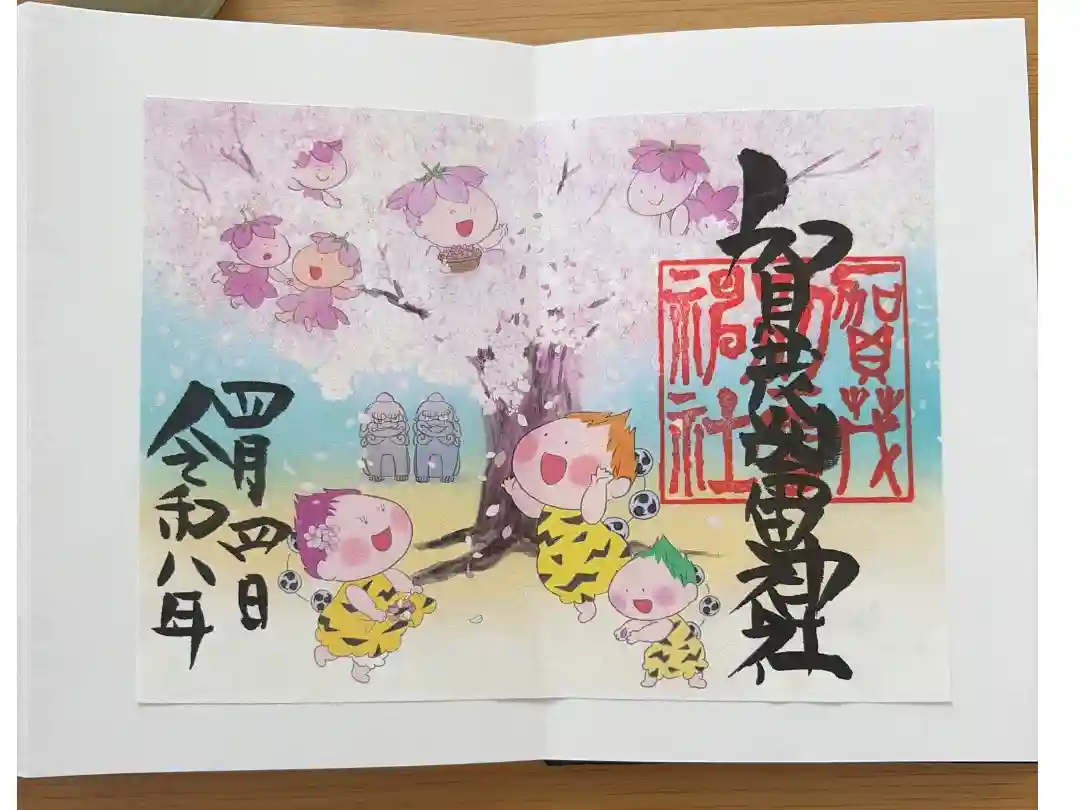 賀茂別雷神社
賀茂
神社
令和八年
四月四日